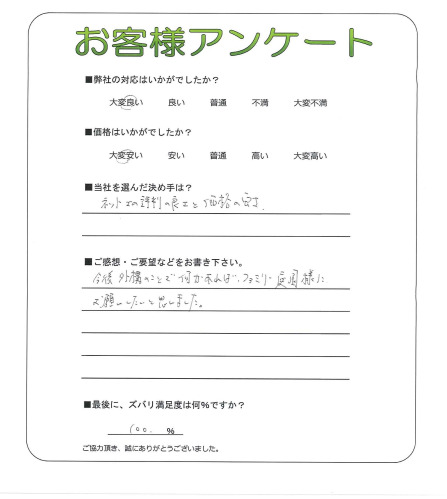 お客様アンケート
■弊社の対応はいかがでしたか？
大変良い 良い 普通 不満 大変不満
■価格はいかがでしたか？
大変安い 安い 普通 高い 大変高い
■当社を選んだ決め手は？
ネット上の評判の良さと価格の安さ.
■ご感想・ご要望などをお書き下さい。
今後外構のことで何かあれば、ファミリー庭園様に
お願いしたいと思いました。
■最後に、ズバリ満足度は何%ですか？
100. %
ご協力頂き、誠にありがとうございました。